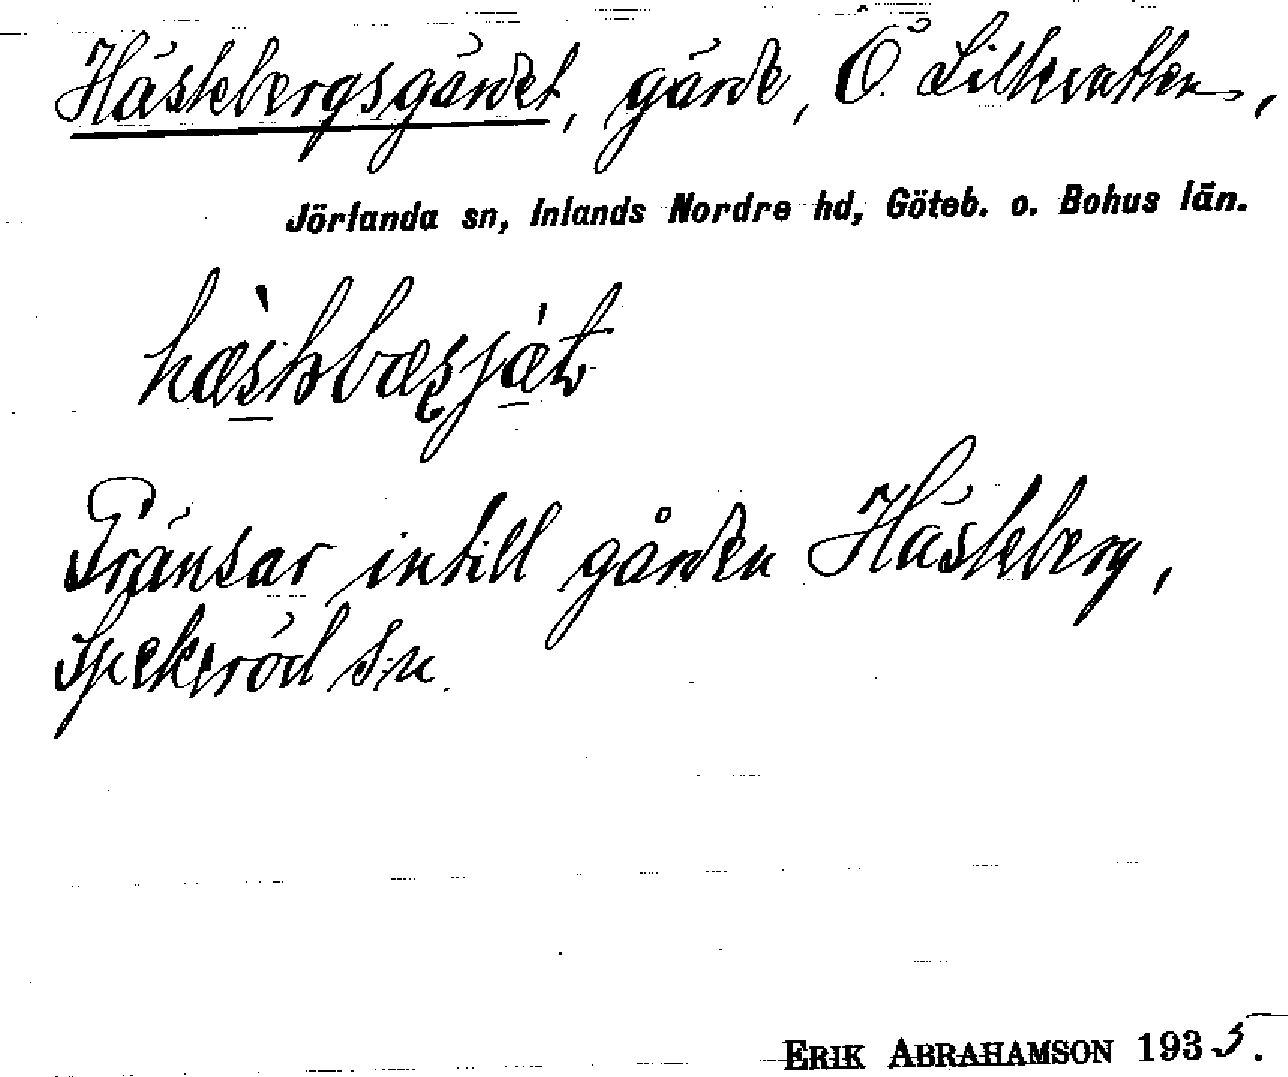 Häskebergsgärdet, gärde, Ö. Lilkvatten,
Jörlanda sn, Inlands Nordre hd, Göteb. o. Bohus län.
Gränsar intill gården Häskeberg,
Spekeröd sn.
ERIK ABRAHAMSON 1935.